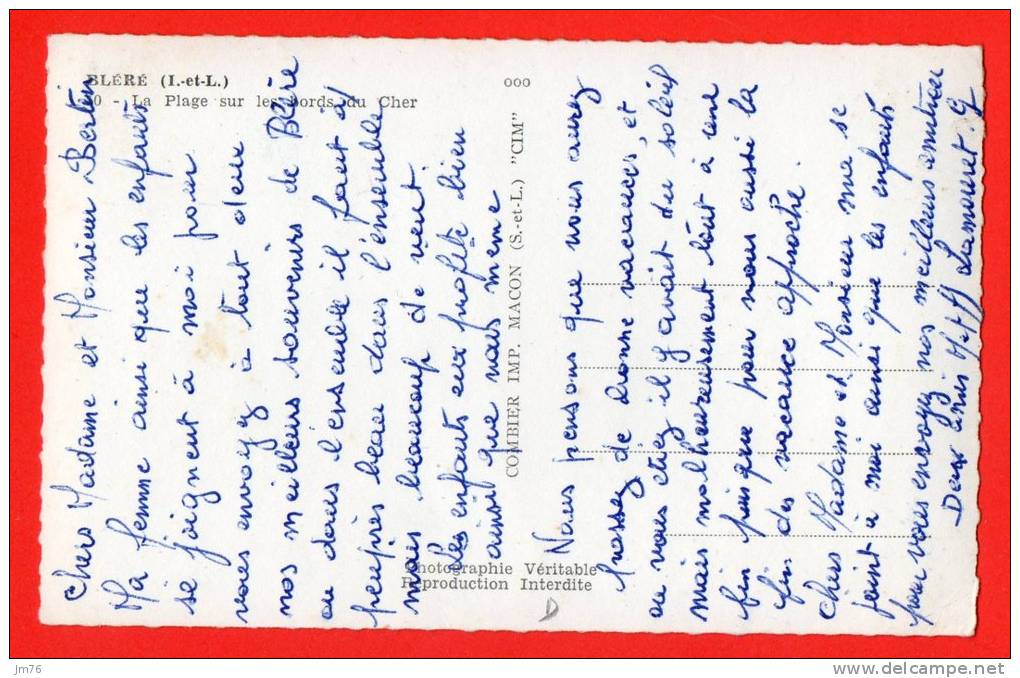 BLÉRÉ (I.-et-L.)
0 - La Plage sur les bords du Cher
ooo
COMBIER IMP. MACON (S.-et-L.) "CIM"
Photographie Véritable
Reproduction Interdite
Chers Madame et Monsieur Bertin
Ma femme ainsi que les enfants
se joignent à moi pour
vous envoyez à tout deux
nos meilleurs souvenirs de Bléré
ou dans l'ensemble il fait à
peuprès beau dans l'ensemble
mais beaucoup de vent.
les enfants eux profite bien
ainsi que nous même
Nous pensons que vous aurez
passez de bonne vacances, et
ou vous etiez il y avait du soleil
mais malheureusement tout à une
fin puis que pour nous aussi la
fin des vacance approche.
Chers Madame et Monsieur ma se
joint à moi ainsi que les enfants
pour vous envoyez nos meilleurs amitiées
Lamouret. G
jm76
delcampe.net